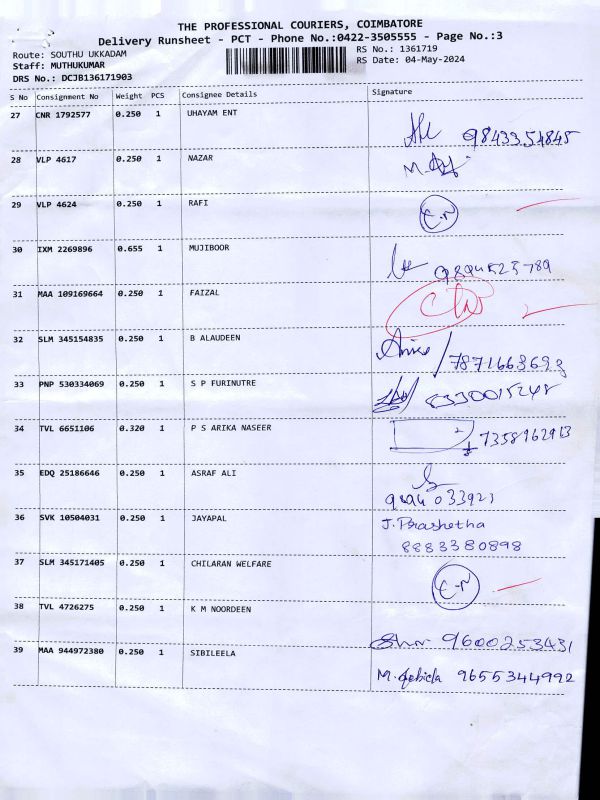 THE PROFESSIONAL COURIERS, COIMBATORE
Delivery Runsheet - PCT - Phone No.:0422-3505555 - Page No.:3
Route: SOUTHU UKKADAM
RS No.: 1361719
Staff: MUTHUKUMAR
RS Date: 04-May-2024
DRS No.: DCJB136171903
S No Consignment No Weight PCS Consignee Details Signature
27 CNR 1792577 0.250 1 UHAYAM ENT
9843354845
28 VLP 4617 0.250 1 NAZAR
29 VLP 4624 0.250 1 RAFI
30 IXM 2269896 0.655 1 MUJIBOOR
31 MAA 109169664 0.250 1 FAIZAL
32 SLM 345154835 0.250 1 B ALAUDEEN
7871663693
33 PNP 530334069 0.250 1 S P FURINUTRE
8330015248
34 TVL 6651106 0.320 1 P S ARIKA NASEER
7358962913
35 EDQ 25186646 0.250 1 ASRAF ALI
36 SVK 10504031 0.250 1 JAYAPAL
J. Prashetha
8883380898
37 SLM 345171405 0.250 1 CHILARAN WELFARE
38 TVL 4726275 0.250 1 K M NOORDEEN
9600253431
39 MAA 944972380 0.250 1 SIBILEELA
9655344992